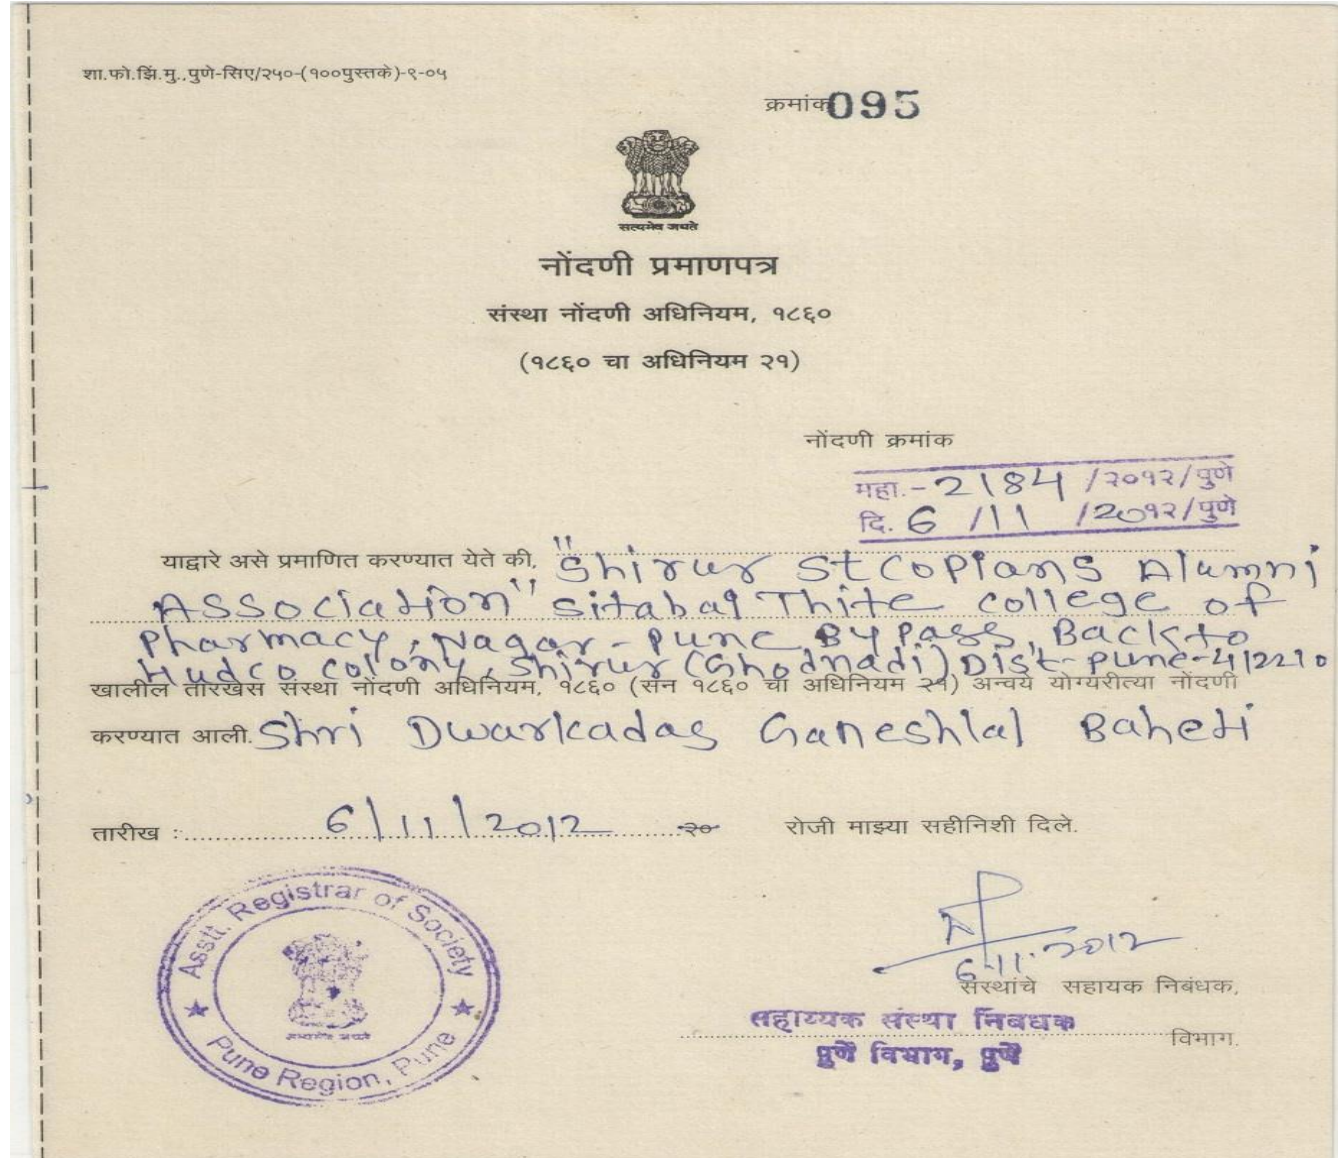 शा.फो.झिं.मु.,पुणे-सिए/२५०-(१००पुस्तके)-९-०५
क्रमांक 095
सत्यमेव जयते
नोंदणी प्रमाणपत्र
संस्था नोंदणी अधिनियम, १८६०
(१८६० चा अधिनियम २१)
नोंदणी क्रमांक
महा.-2184/२०१२/पुणे
दि. 6/11/२०१२/पुणे
याद्वारे असे प्रमाणित करण्यात येते की, "Shirur StCopians Alumni
Association" Sitabai Thite College of
Pharmacy, Nagar-Pune By Pass, Back to
Hudco Colony, Shirur (Ghodnadi) Dist-Pune-412210
खालील तारखेस संस्था नोंदणी अधिनियम, १८६० (सन १८६० चा अधिनियम २१) अन्वये योग्यरीत्या नोंदणी
करण्यात आली. Shri Dwarkadas Ganeshlal Baheti
तारीख : 6/11/2012 २० रोजी माझ्या सहीनिशी दिले.
Asstt. Registrar of Society
सत्यमेव जयते
Pune Region, Pune
6.11.2012
संस्थांचे सहायक निबंधक,
सहाय्यक संस्था निबंधक
विभाग.
पुणे विभाग, पुणे